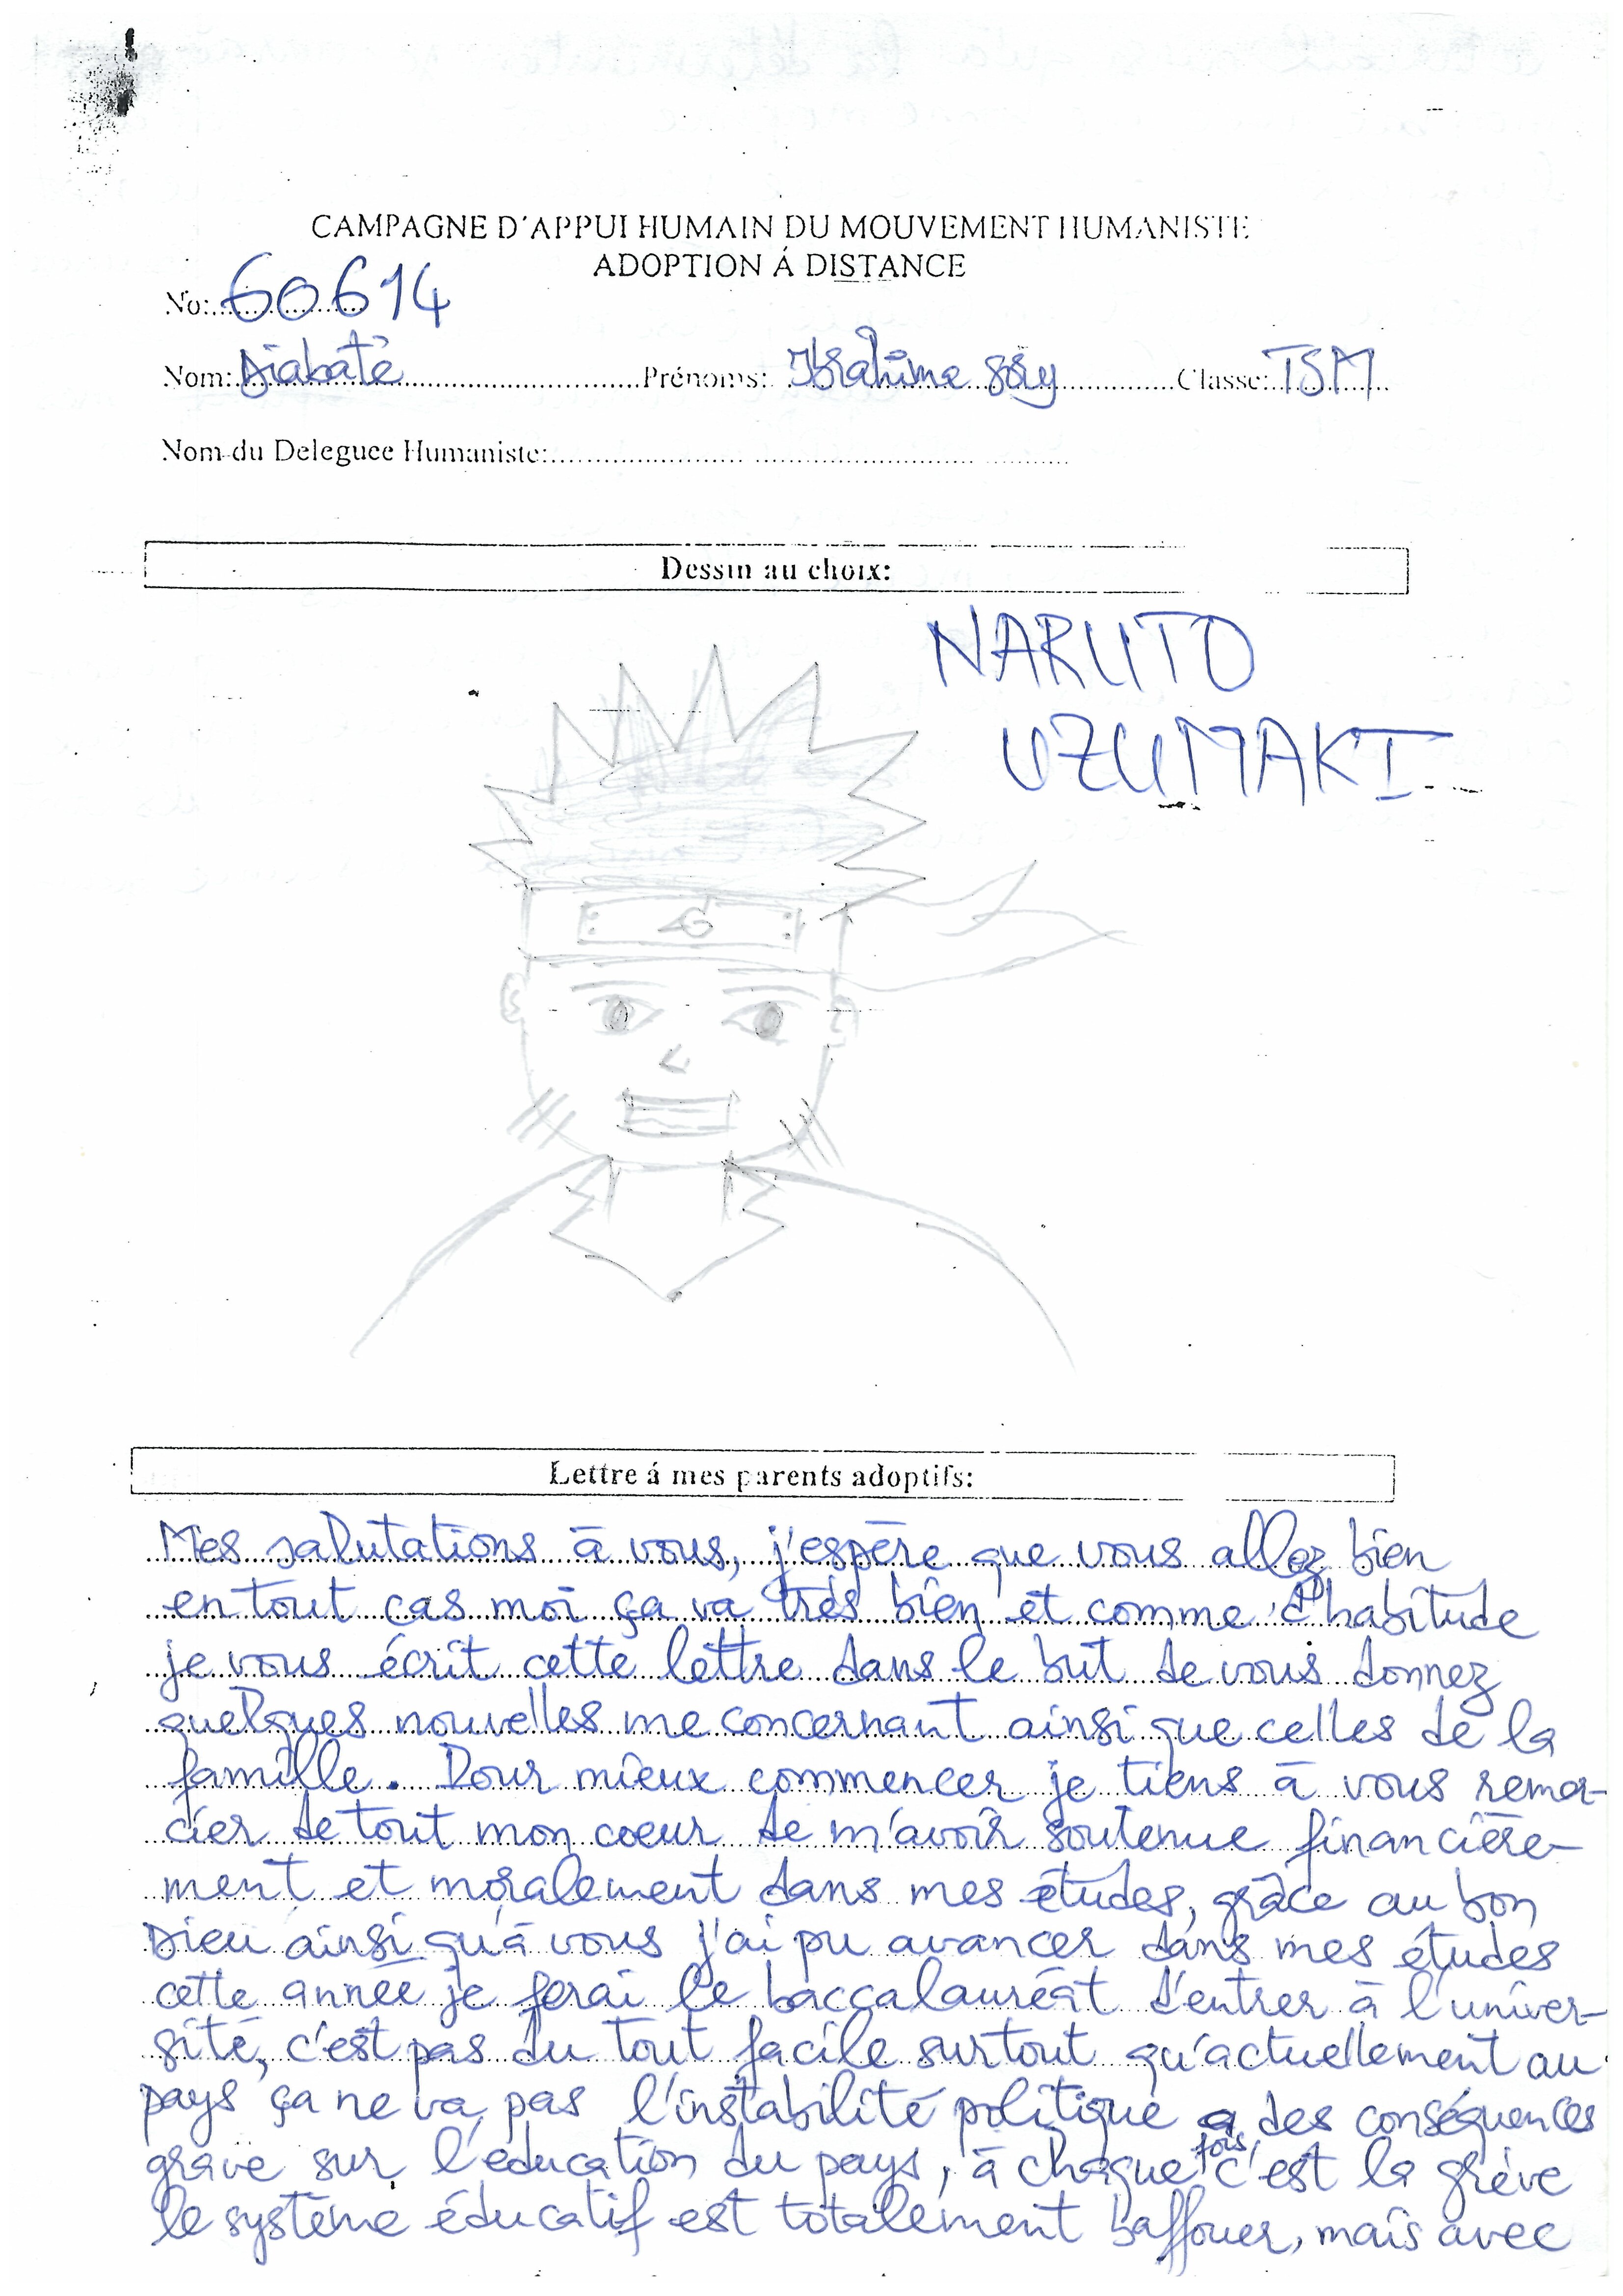 CAMPAGNE D'APPUI HUMAIN DU MOUVEMENT HUMANISTE
ADOPTION Á DISTANCE
No: 60614
Nom: Diabaté Prénoms: Ibrahima Sory Classe: TSM
Nom du Deleguee Humaniste:
Dessin au choix:
NARUTO
UZUMAKI
Lettre á mes parents adoptifs:
Mes salutations à vous, j'espère que vous allez bien
en tout cas moi ça va très bien et comme d'habitude
je vous écrit cette lettre dans le but de vous donnez
quelques nouvelles me concernant ainsi que celles de la
famille. Pour mieux commencer je tiens à vous remer-
cier de tout mon coeur de m'avoir soutenue financière-
ment et moralement dans mes études, grâce au bon
Dieu ainsi qu'à vous j'ai pu avancer dans mes études
cette année je ferai le baccalauréat d'entrer à l'univer-
sité, c'est pas du tout facile surtout qu'actuellement au
pays ça ne va pas l'instabilité politique a des conséquences
grave sur l'éducation du pays, à chaque fois, c'est la grève
le système éducatif est totalement baffouer, mais avec